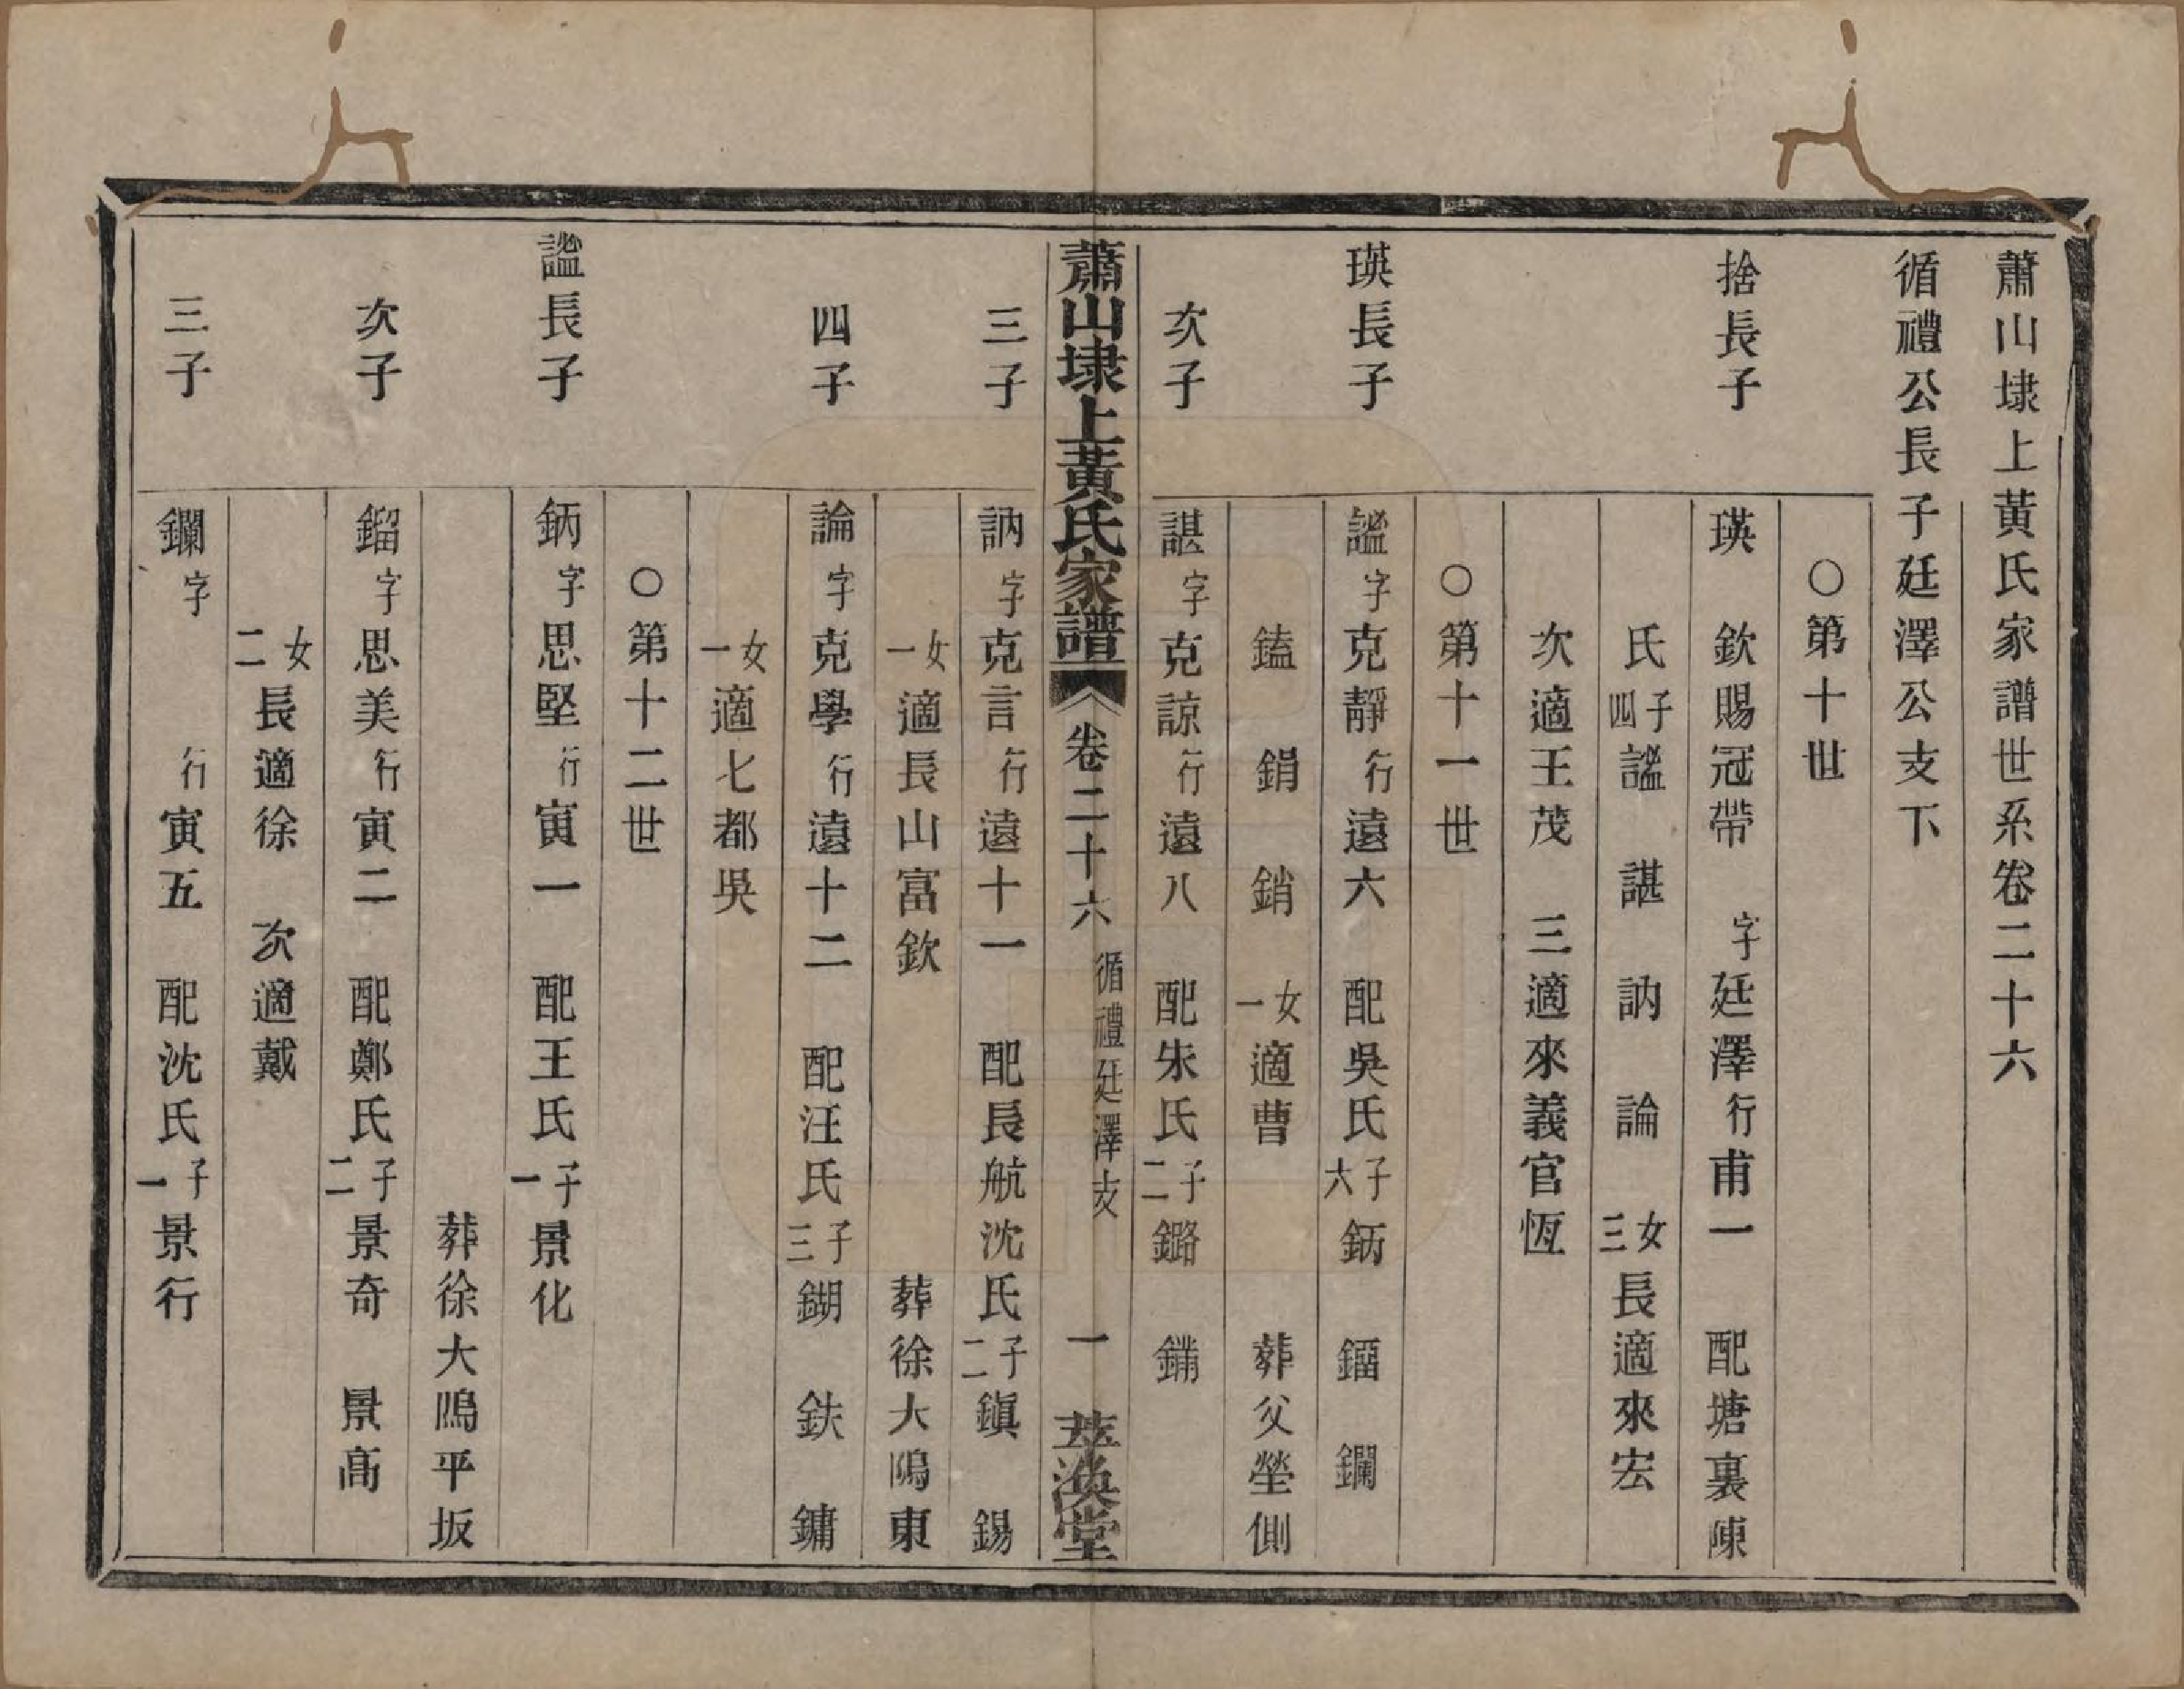 蕭山埭上黃氏家譜世系卷二十六
循禮公長子廷澤公支下
○第十世
捨長子 瑛 欽賜冠帶 字廷澤行甫一 配塘裏陳
氏子四謐 諶 訥 論 女三長適來宏
次適王茂 三適來義官恆
○第十一世
瑛長子 謐字克靜行遠六 配吳氏子六鈵 鎦 鑭
鎑 鋗 銷 女一適曹 葬父塋側
次子 諶字克諒行遠八 配朱氏二子鏴 鏽
蕭山埭上黃氏家譜 卷二十六 循禮廷澤支 一 萃渙堂
三子 訥字克言行遠十一 配長航沈氏二子鎭 錫
女一適長山富欽 葬徐大隝東
四子 論字克學行遠十二 配汪氏三子鍸 鈇 鏞
女一適七都吳
○第十二世
謐長子 鈵字思堅行寅一 配王氏一子景化
葬徐大隝平坂
次子 鎦字思美行寅二 配鄭氏二子景奇 景高
女二長適徐 次適戴
三子 鑭字 行寅五 配沈氏一子景行